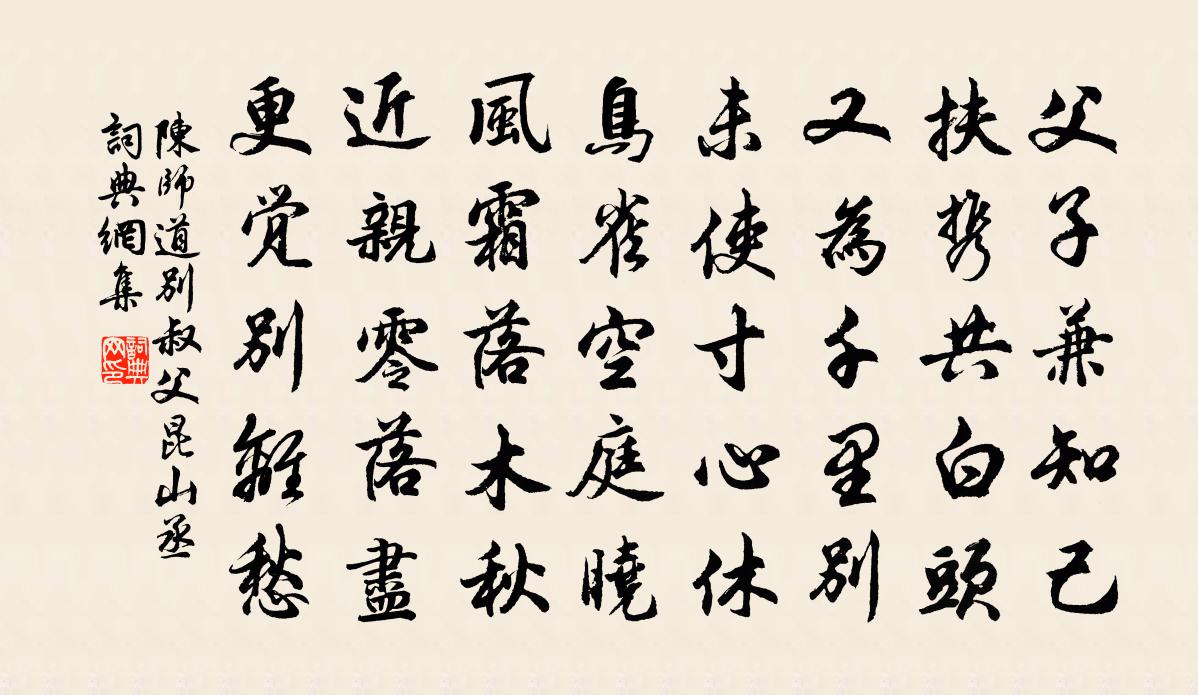 父子兼知己
扶携共白頭
又為千里別
未使寸心休
鳥雀空庭曉
風霜落木秋
近親零落盡
更觉別離愁
陳師道別叔父昆山丞
詞典網集
詞典网印